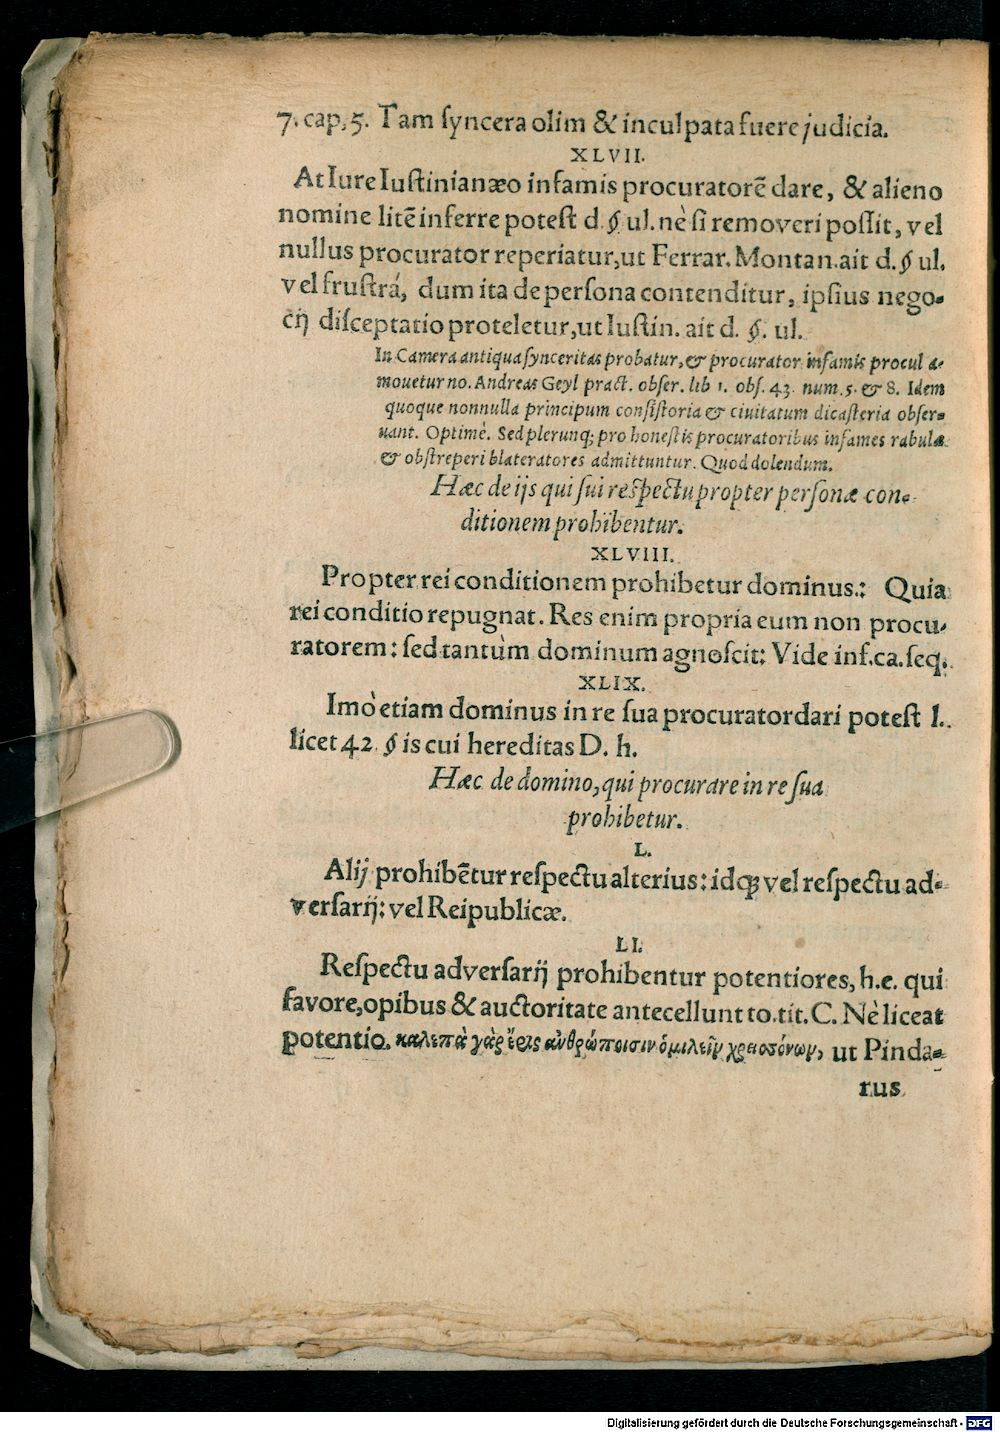 7. cap, 5. Tam ſyncera olim & inculpata fuere judicia.
XLVII.
At Iure Iuſtinianæo infamis procuratorē dare, & alieno
nomine litē inferre poteſt d. § ul. nè ſi removeri poſſit, vel
nullus procurator reperiatur, ut Ferrar. Montan. ait d. § ul.
vel fruſtrá, dum ita de perſona contenditur, ipſius nego-
cij diſceptatio proteletur, ut Iuſtin. ait d. §. ul.
In Camera antiqua ſynceritas probatur, & procurator infamis procul a-
mouetur no. Andreas Geyl pract. obſer. lib 1. obſ. 43. num. 5. & 8. Idem
quoque nonnulla principum conſiſtoria & ciuitatum dicaſteria obſer-
uant. Optimè. Sed plerunq; pro honeſtis procuratoribus infames rabulæ
& obſtreperi blateratores admittuntur. Quod dolendum.
Hæc de ijs qui ſui reſpectu propter perſonæ con-
ditionem prohibentur.
XLVIII.
Propter rei conditionem prohibetur dominus.: Quia
rei conditio repugnat. Res enim propria eum non procu-
ratorem: ſed tantùm dominum agnoſcit: Vide inf. ca. ſeq.
XLIX.
Imò etiam dominus in re ſua procurator dari poteſt l.
licet 42. § is cui hereditas D. h.
Hæc de domino, qui procurare in re ſua
prohibetur.
L.
Alij prohibētur reſpectu alterius: idq; vel reſpectu ad-
verſarij: vel Reipublicæ.
LI.
Reſpectu adverſarij prohibentur potentiores, h.e. qui
favore, opibus & auctoritate antecellunt to. tit. C. Nè liceat
potentio. καλεπὰ γὰρ ἔρις ἀνθρώποισιν ὁμιλεῖν κρειοσόνων, ut Pinda-
rus
Digitalisierung gefördert durch die Deutsche Forschungsgemeinschaft - DFG